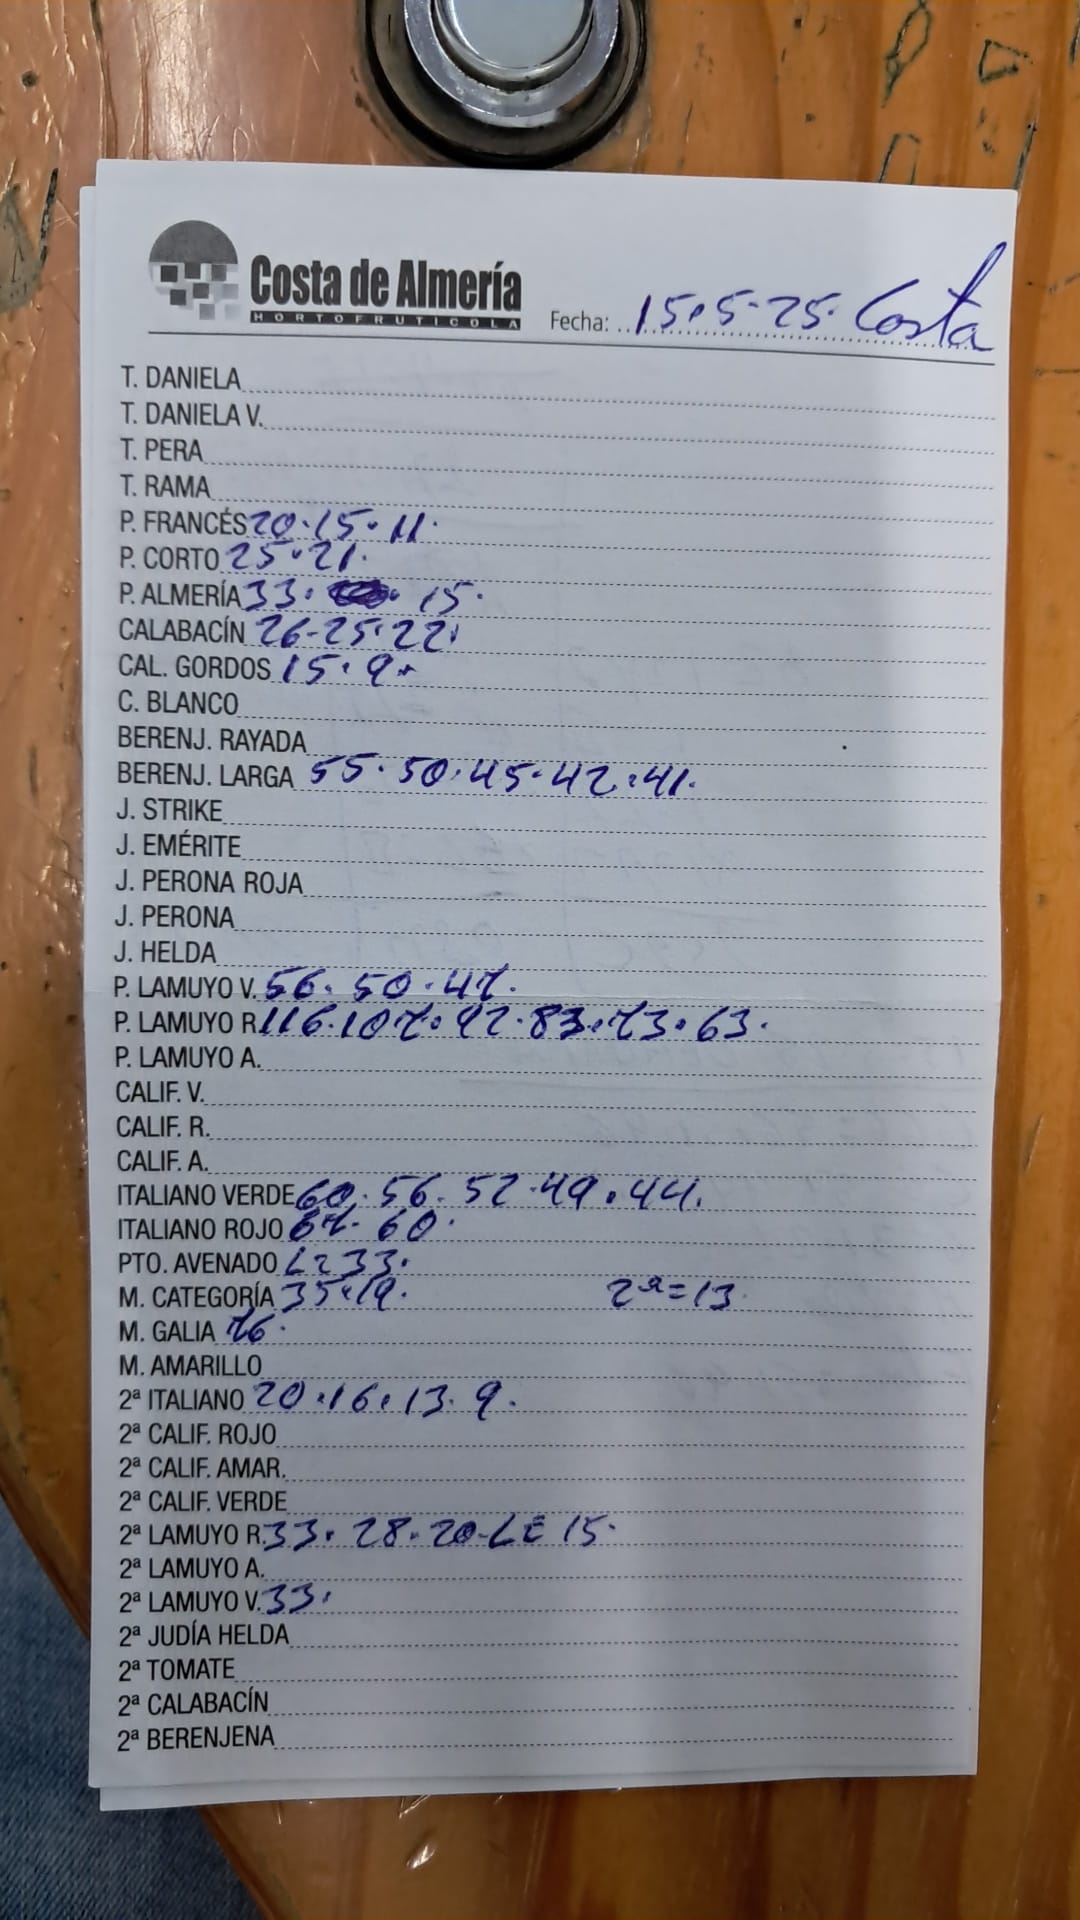 Costa de Almería
HORTOFRUTICOLA
Fecha: 15.5-25. Costa
T. DANIELA
T. DANIELA V.
T. PERA
T. RAMA
P. FRANCÉS 20.15.11.
P. CORTO 25.21.
P. ALMERÍA 33. 15.
CALABACÍN 26-25.22.
CAL. GORDOS 15.9.
C. BLANCO
BERENJ. RAYADA
BERENJ. LARGA 55.50.45.42.41.
J. STRIKE
J. EMÉRITE
J. PERONA ROJA
J. PERONA
J. HELDA
P. LAMUYO V. 56.50.47.
P. LAMUYO R. 116.107.92.83.73.63.
P. LAMUYO A.
CALIF. V.
CALIF. R.
CALIF. A.
ITALIANO VERDE 60.56.52.49.44.
ITALIANO ROJO 67.60.
PTO. AVENADO 33.
M. CATEGORÍA 35.19. 2ª=13
M. GALIA 76.
M. AMARILLO
2ª ITALIANO 20.16.13.9.
2ª CALIF. ROJO
2ª CALIF. AMAR.
2ª CALIF. VERDE
2ª LAMUYO R. 33.28.20-LE 15.
2ª LAMUYO A.
2ª LAMUYO V. 33.
2ª JUDÍA HELDA
2ª TOMATE
2ª CALABACÍN
2ª BERENJENA